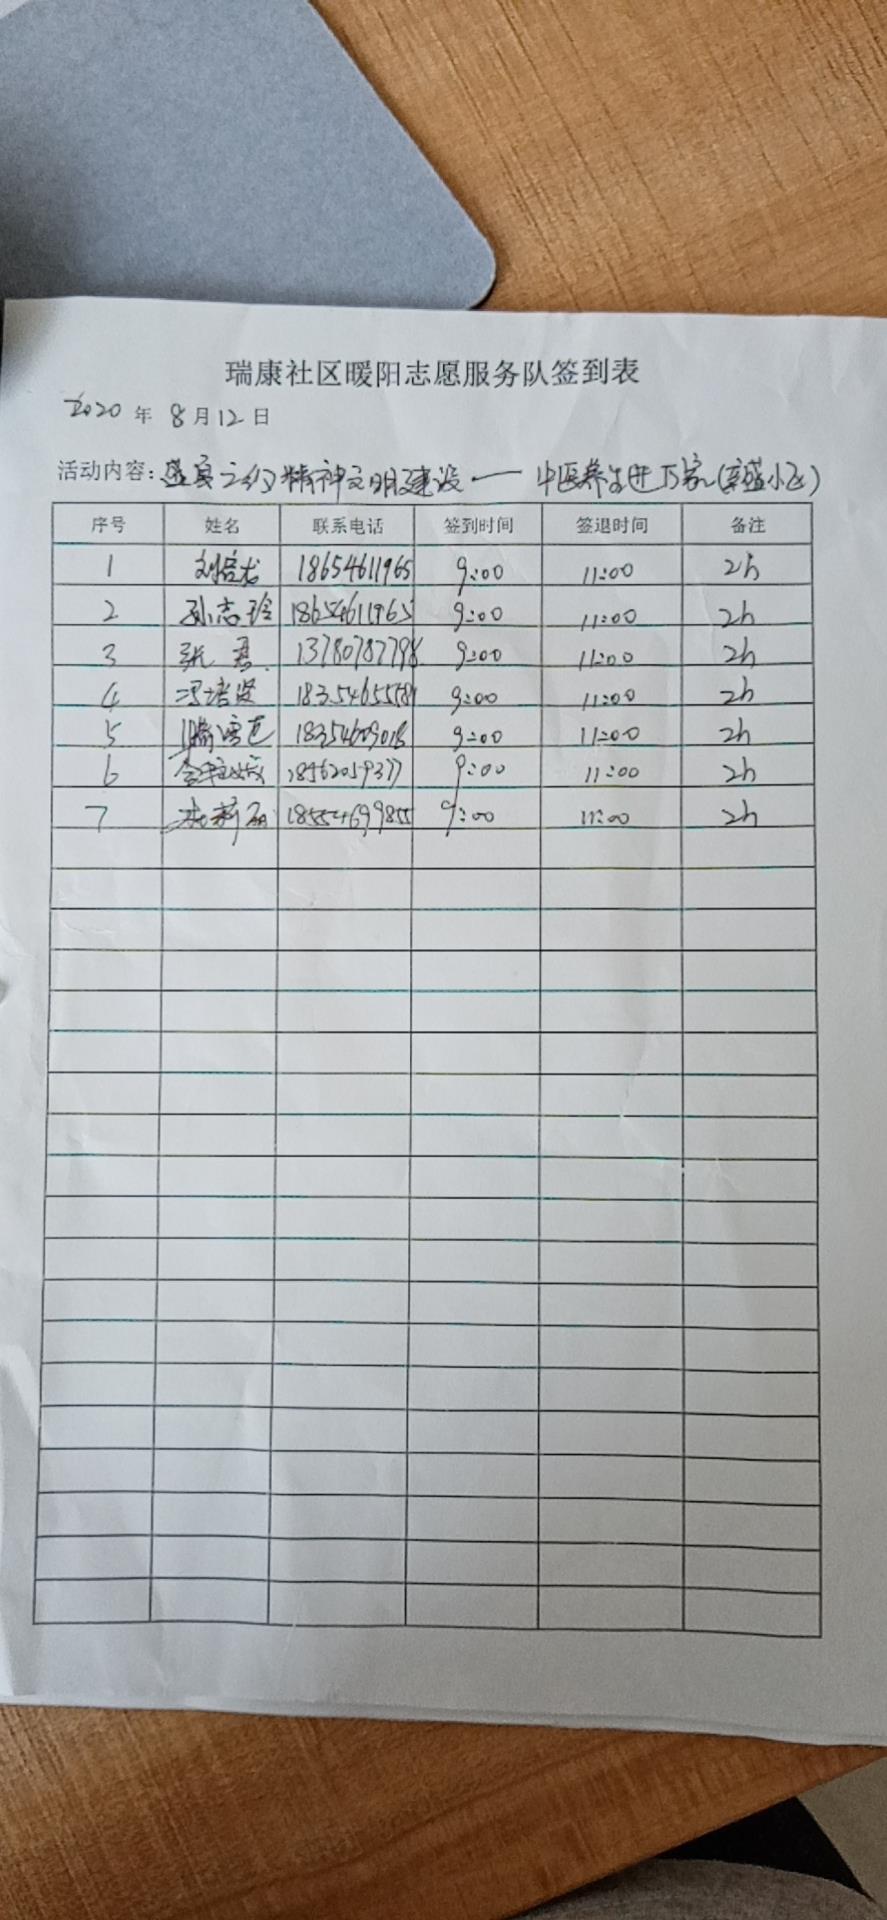 瑞康社区暖阳志愿服务队签到表
2020 年 8 月 12 日
活动内容: 盛夏之约精神文明建设 — 中医养生进万家(盛小区)
序号 姓名 联系电话 签到时间 签退时间 备注
1 18654611965 9:00 11:00 2h
2 孙志玲 18654611965 9:00 11:00 2h
3 张君 13780787798 9:00 11:00 2h
4 冯培贤 9:00 11:00 2h
5 9:00 11:00 2h
6 18562059377 9:00 11:00 2h
7 杜莉丽 18554699855 9:00 11:00 2h